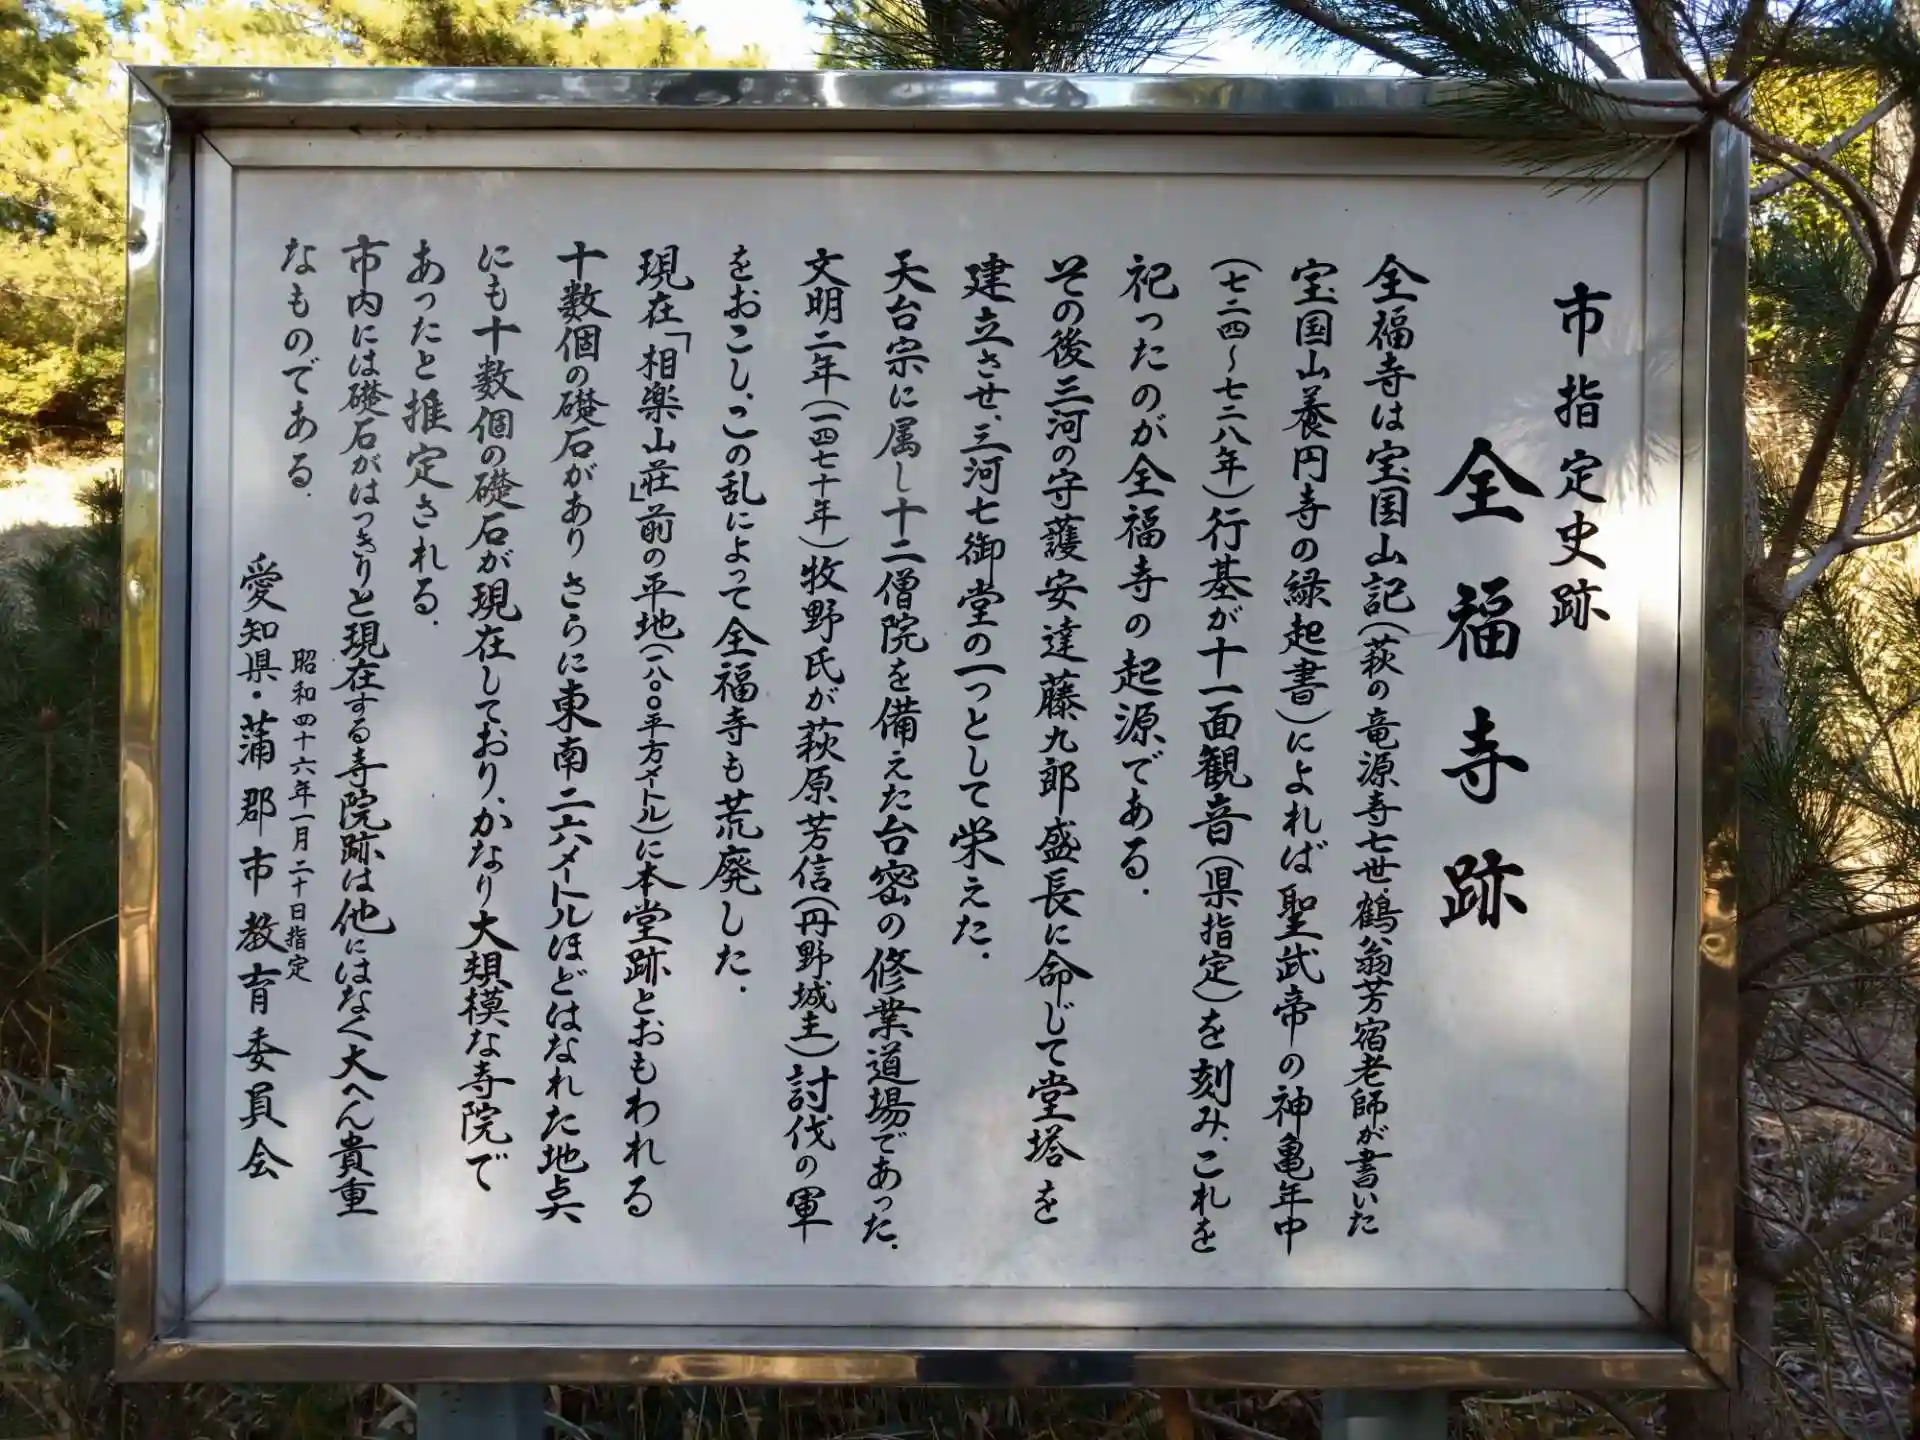 市指定史跡
全福寺跡
全福寺は宝国山記(萩の竜源寺七世鶴翁芳宿老師が書いた
宝国山養円寺の緑起書)によれば聖武帝の神亀年中
(七二四～七二八年)行基が十一面観音(県指定)を刻み、これを
祀ったのが全福寺の起源である.
その後三河の守護安達藤九郎盛長に命じて堂塔を
建立させ、三河七御堂の一つとして栄えた.
天台宗に属し十二僧院を備えた台密の修業道場であった.
文明二年(一四七十年)牧野氏が萩原芳信(丹野城主)討伐の軍
をおこし、この乱によって全福寺も荒廃した.
現在「相楽山荘」前の平地(一八〇平方メートル)に本堂跡とおもわれる
十数個の礎石がありさらに東南二六メートルほどはなれた地点
にも十数個の礎石が現在しており、かなり大規模な寺院で
あったと推定される.
市内には礎石がはっきりと現在する寺院跡は他にはなく大へん貴重
なものである.
昭和四十六年一月二十日指定
愛知県・蒲郡市教育委員会